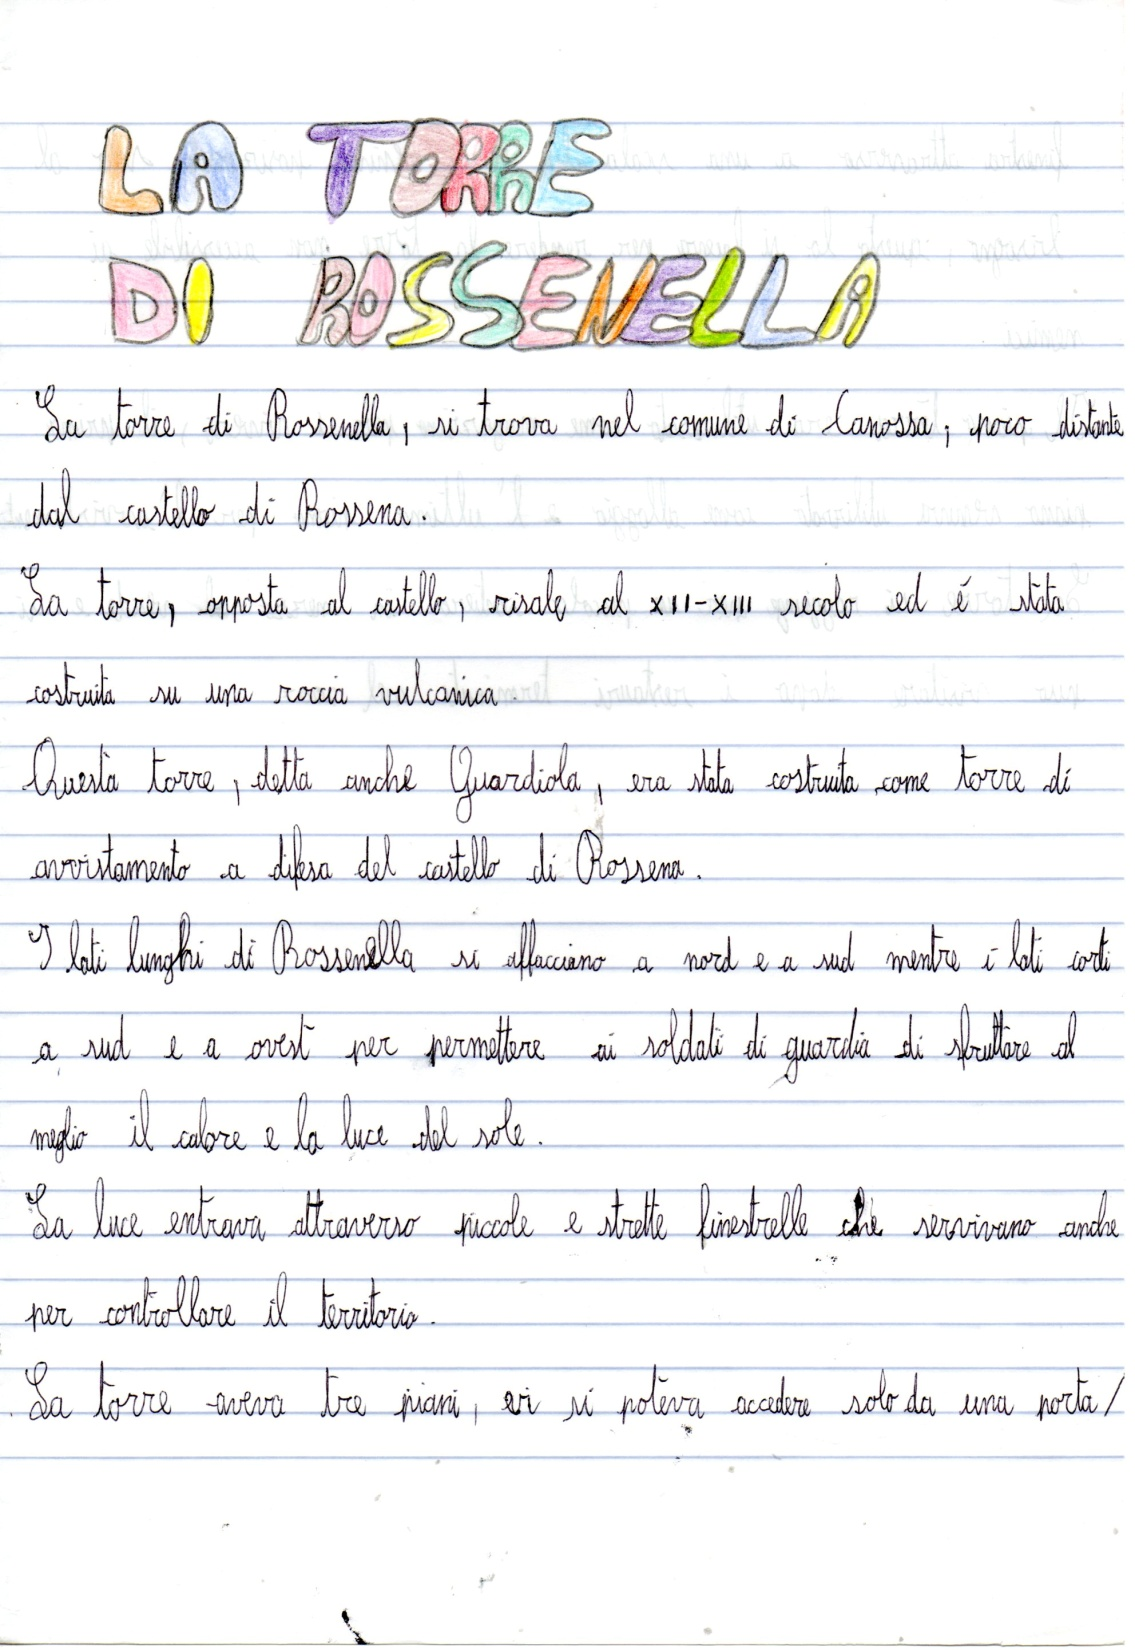 LA TORRE
DI ROSSENELLA
La torre di Rossenella, si trova nel comune di Canossa, poco distante
dal castello di Rossena.
La torre, opposta al castello, risale al XII-XIII secolo ed é stata
costruita su una roccia vulcanica.
Questa torre, detta anche Guardiola, era stata costruita come torre di
avvistamento a difesa del castello di Rossena.
I lati lunghi di Rossenella si affacciano a nord e a sud mentre i lati corti
a sud e a ovest per permettere ai soldati di guardia di sfruttare al
meglio il calore e la luce del sole.
La luce entrava attraverso piccole e strette finestrelle che servivano anche
per controllare il territorio.
La torre aveva tre piani, vi si poteva accedere solo da una porta/